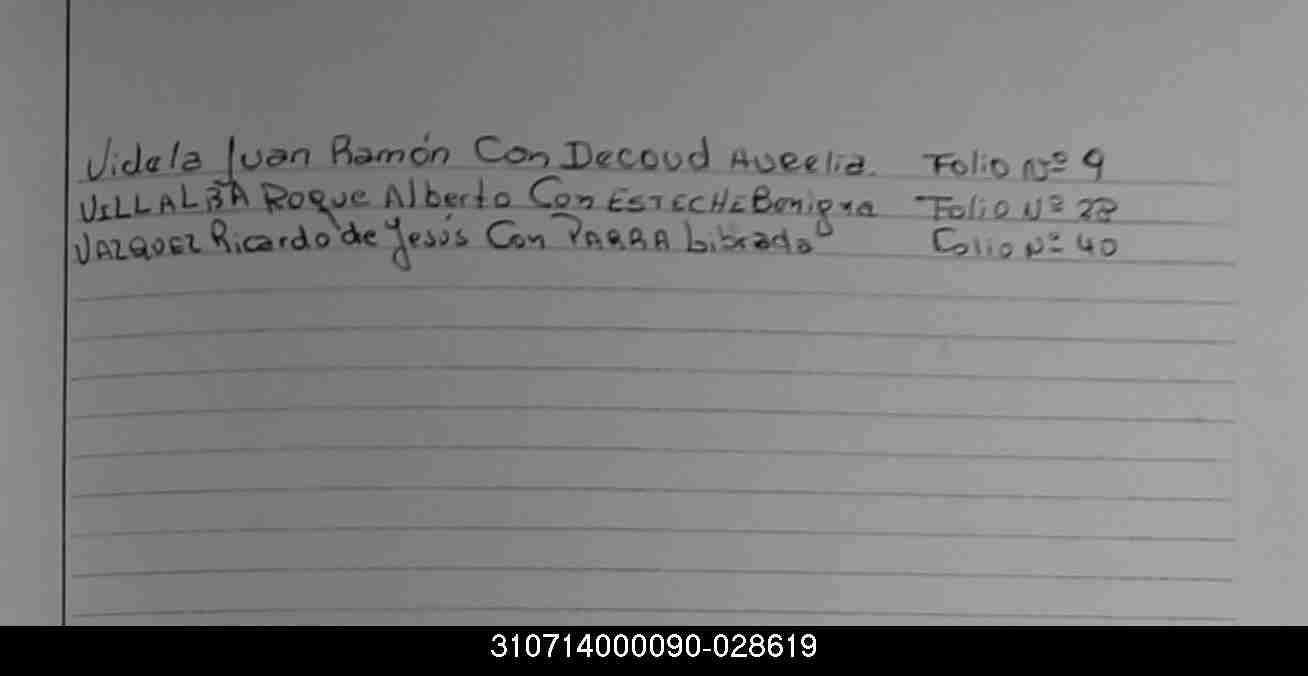 Videla Juan Ramón Con Decoud Aurelia. Folio Nº 9
VILLALBA Roque Alberto Con ESTECHE Benigna Folio Nº 28
VAZQUEZ Ricardo de Jesús Con PARRA Librada Folio Nº 40
310714000090-028619